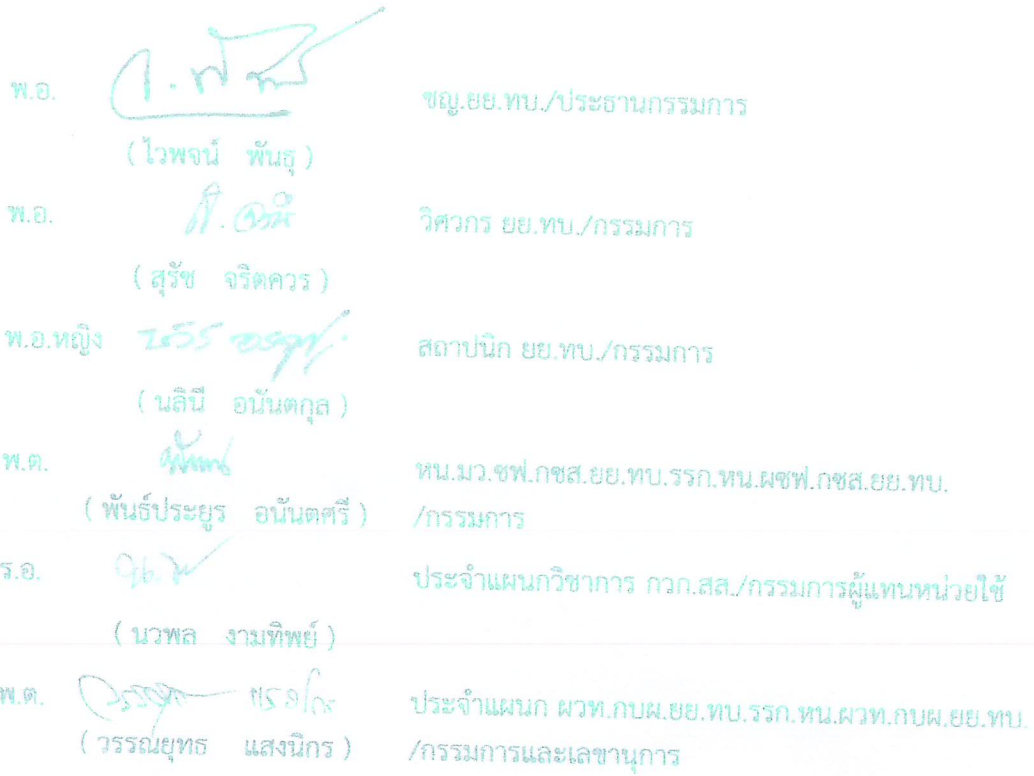 พ.อ. ชญ.ยย.ทบ./ประธานกรรมการ
( ไวพจน์ พันธุ )
พ.อ. วิศวกร ยย.ทบ./กรรมการ
( สุรัช จริตควร )
พ.อ.หญิง สถาปนิก ยย.ทบ./กรรมการ
( นลินี อนันตกุล )
พ.ต. หน.มว.ชฟ.กชส.ยย.ทบ.รรก.หน.ผซฟ.กซส.ยย.ทบ.
( พันธ์ประยูร อนันตศรี ) /กรรมการ
ร.อ. ประจำแผนกวิชาการ กวก.สล./กรรมการผู้แทนหน่วยใช้
( นวพล งามทิพย์ )
พ.ต. ประจำแผนก ผวท.กบผ.ยย.ทบ.รรก.หน.ผวท.กบผ.ยย.ทบ.
( วรรณยุทธ แสงนิกร ) /กรรมการและเลขานุการ